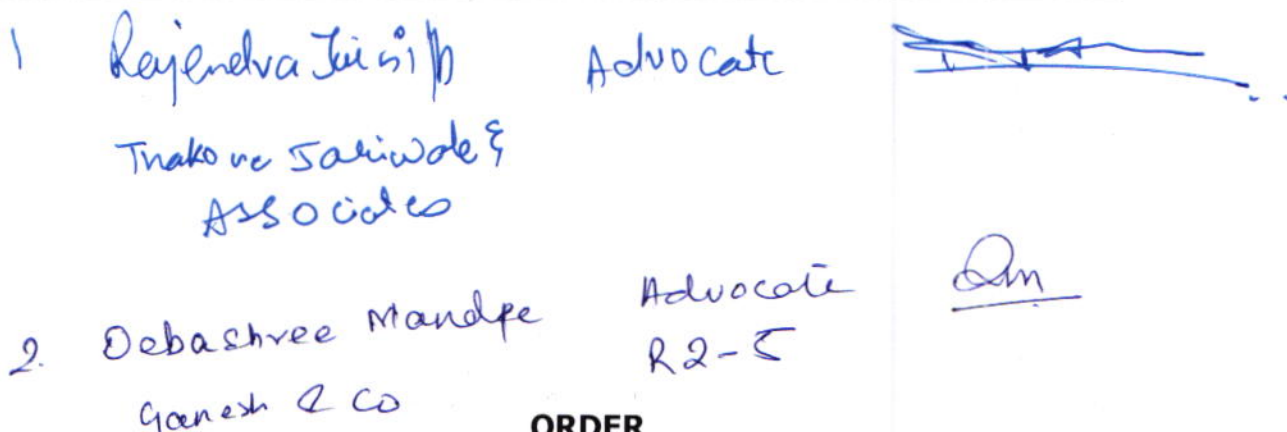 1 Rajendra Advocate
Thakore Jariwala &
Associates
2. Debashree Mandpe Advocate
Ganesh & Co R2-5
ORDER